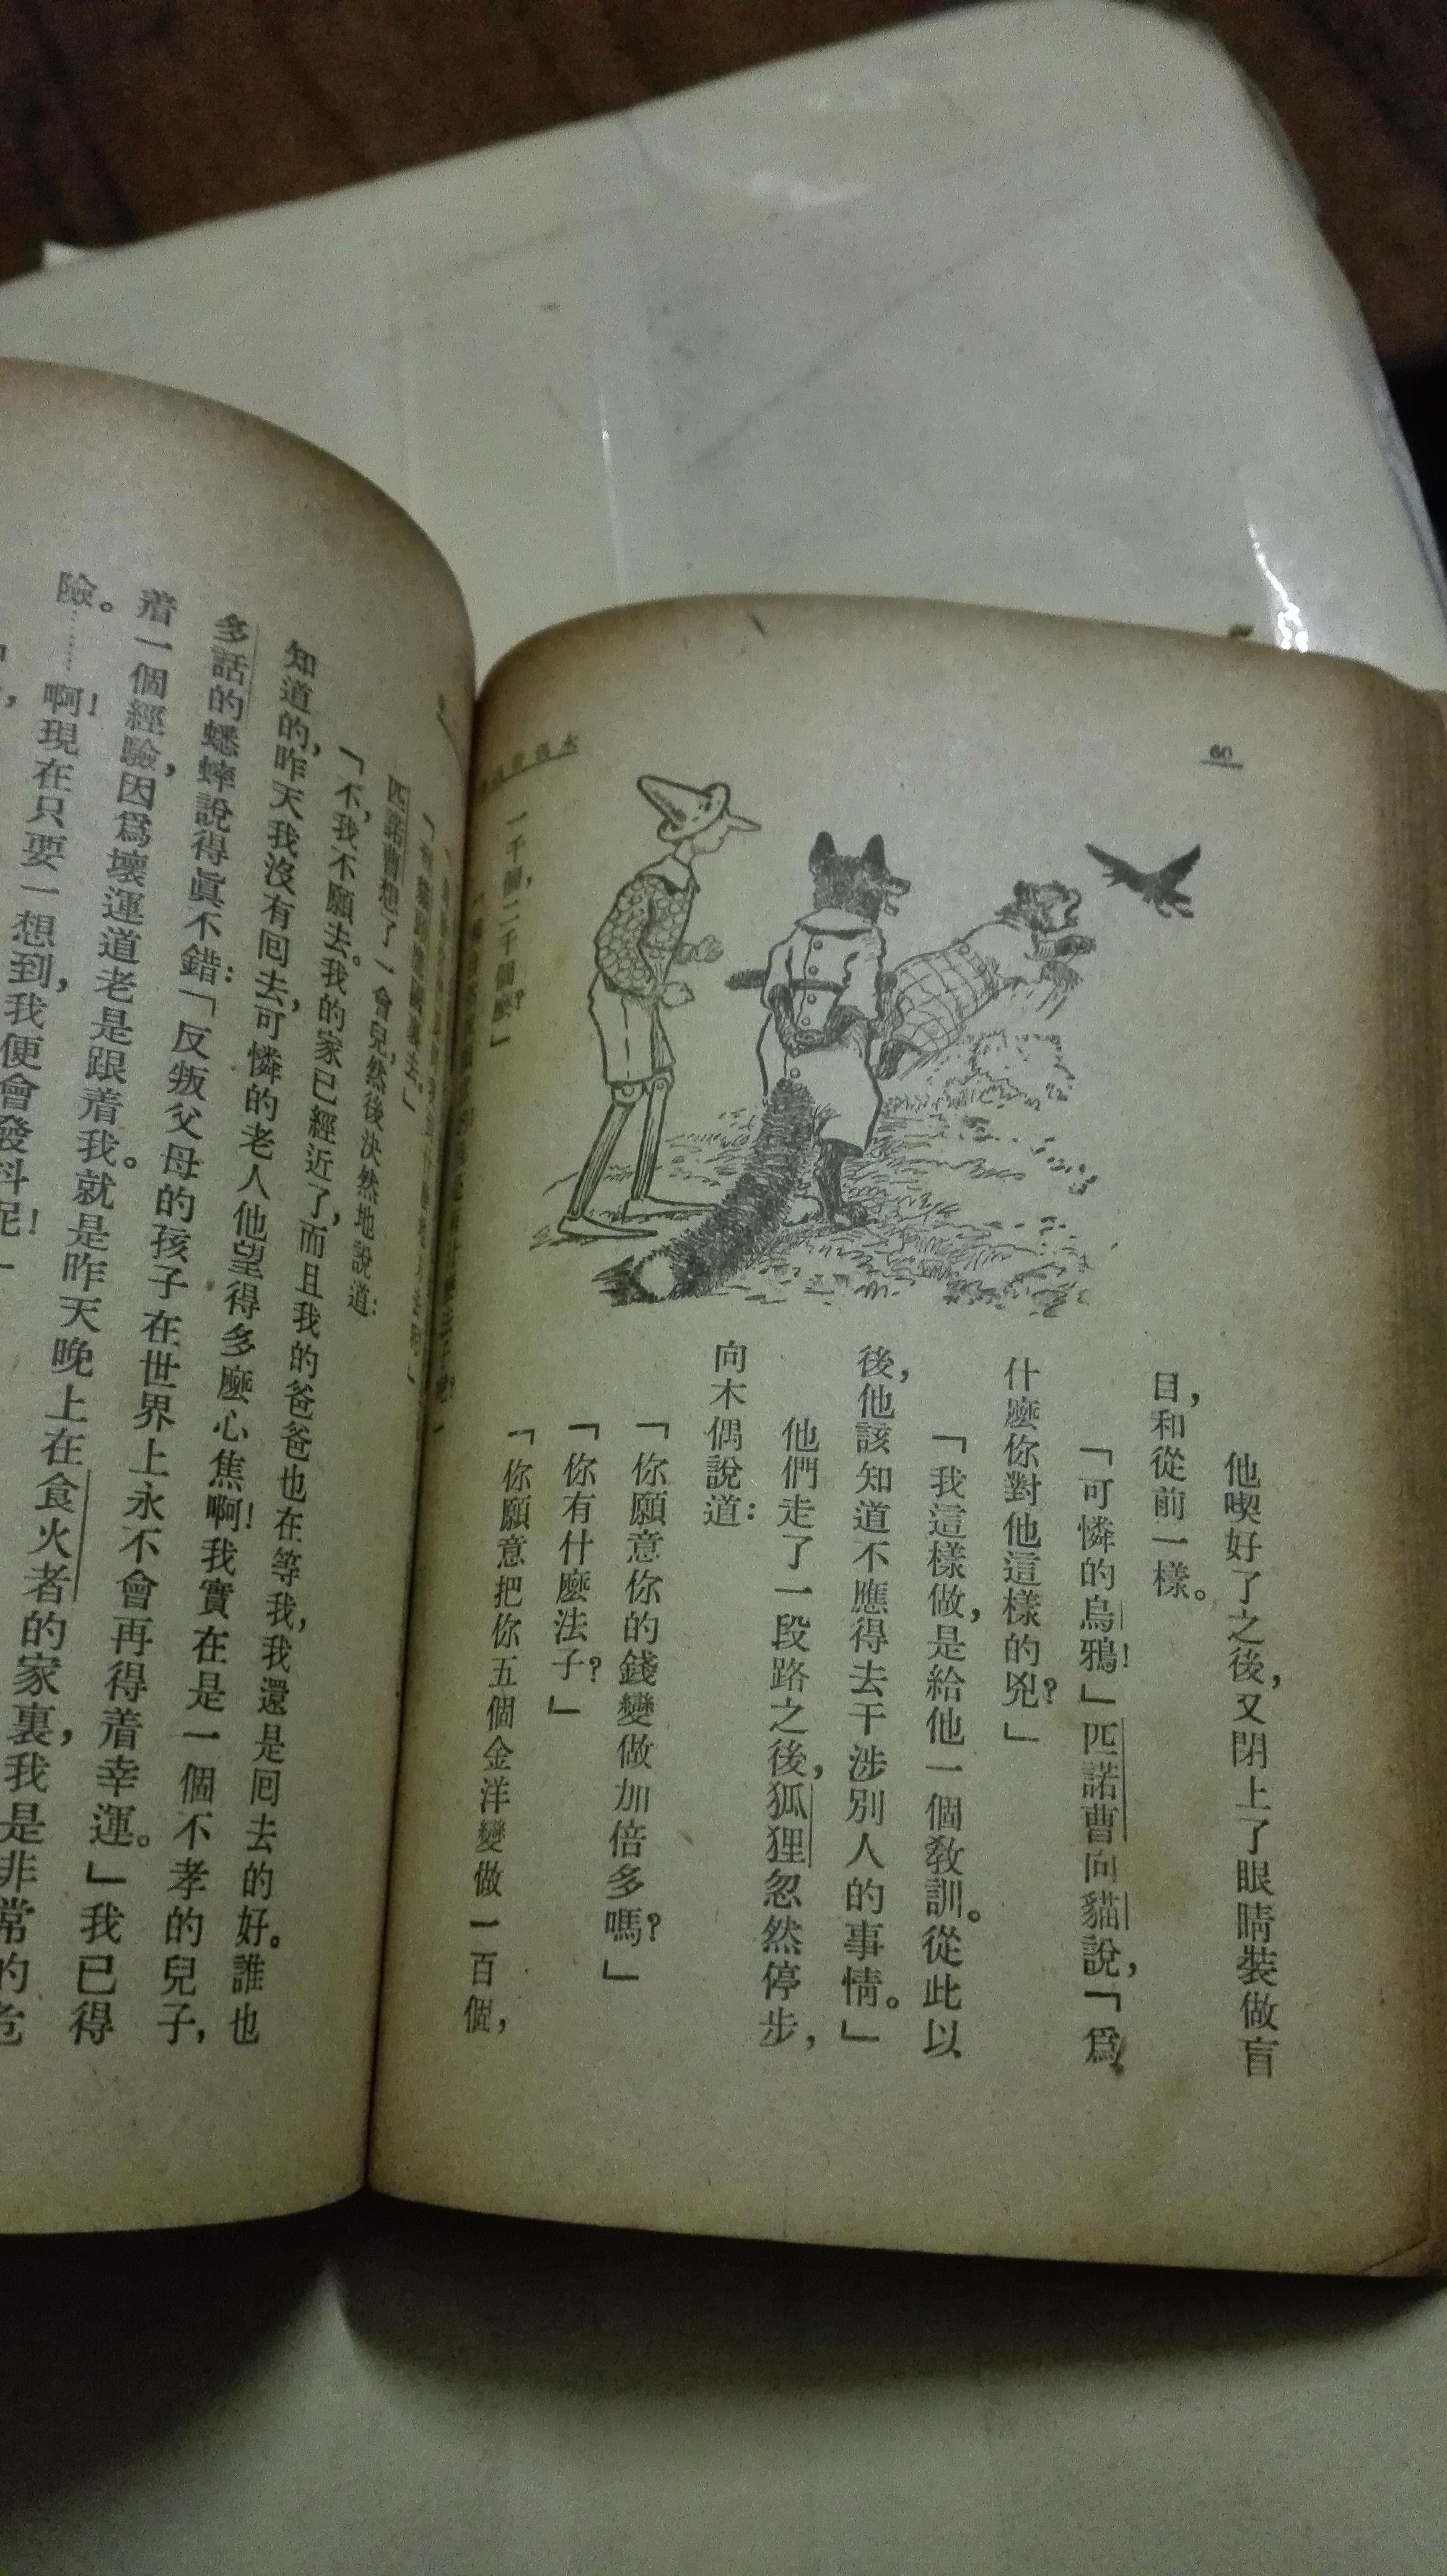 60
他喫好了之後,又閉上了眼睛裝做盲
目,和從前一樣。
「可憐的烏鴉!」匹諾曹向貓說,「爲
什麼你對他這樣的兇?」
「我這樣做,是給他一個教訓。從此以
後,他該知道不應得去干涉別人的事情。」
他們走了一段路之後,狐狸忽然停步,
向木偶說道:
「你願意你的錢變做加倍多嗎?」
「你有什麼法子?」
「你願意把你五個金洋變做一百個,
一千個,二千個麼?」
匹諾曹想了一會兒,然後決然地說道:
「不,我不願去。我的家已經近了,而且我的爸爸也在等我,我還是囘去的好。誰也
知道的,昨天我沒有囘去,可憐的老人他望得多麼心焦啊!我實在是一個不孝的兒子,
多話的蟋蟀說得眞不錯:「反叛父母的孩子在世界上永不會再得着幸運。」我已得
着一個經驗,因爲壞運道老是跟着我。就是昨天晚上在食火者的家裏,我是非常的危
險。……啊!現在只要一想到,我便會發抖呢!